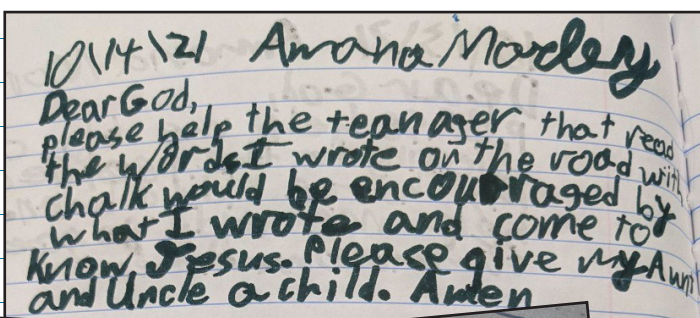 10\14\21 Amana Morley
Dear God,
please help the teanager that read
the words I wrote on the road with
chalk would be encouraged by
what I wrote and come to
know Jesus. Please give my Aunt
and Uncle a child. Amen